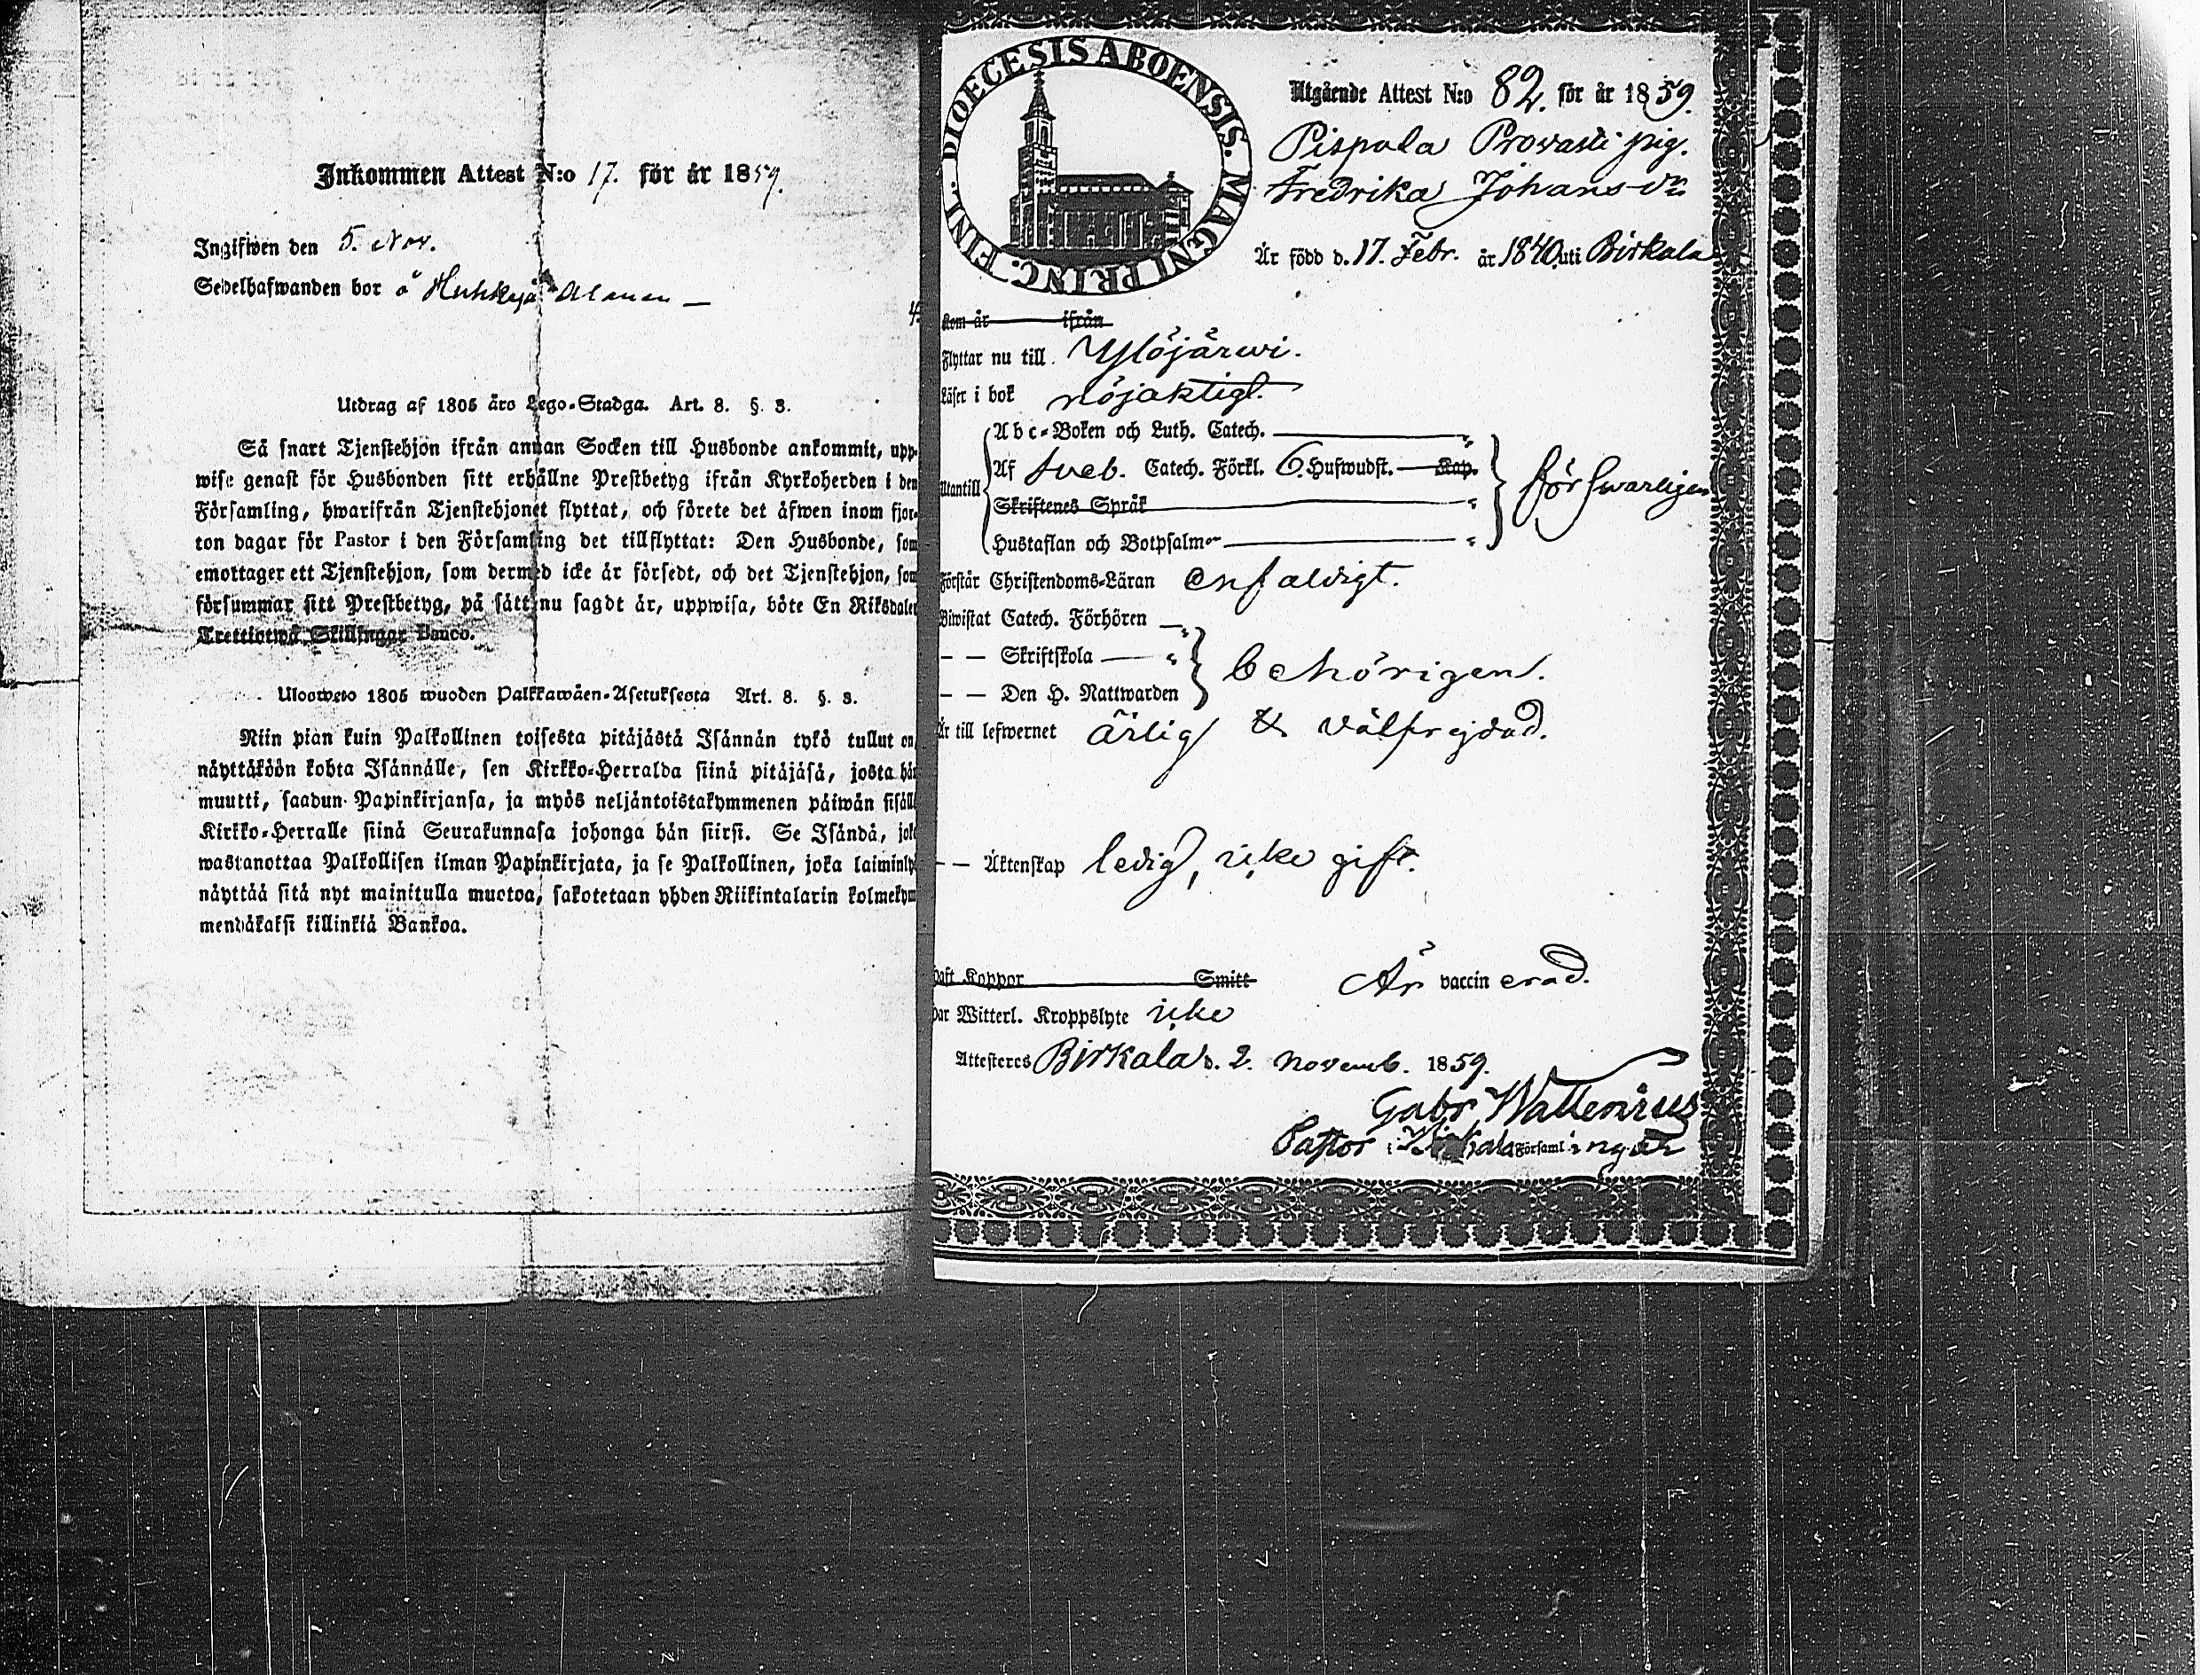 Inkommen Attest N:o 17. för år 1859.
Ingifwen den 5. Nov.
Sedelhafwanden bor å Huhkyä Alanen —
Utdrag af 1805 års Lego-Stadga. Art. 8. §. 3.
Så snart Tjenstehjon ifrån annan Socken till Husbonde ankommit, upp-
wise genast för Husbonden sitt erhållne Prestbetyg ifrån Kyrkoherden i den
Församling, hwarifrån Tjenstehjonet flyttat, och förete det äfwen inom fjor-
ton dagar för Pastor i den Församling det tillflyttat: Den Husbonde, som
emottager ett Tjenstehjon, som dermed icke är försedt, och det Tjenstehjon, som
försummar sitt Prestbetyg, på sätt nu sagdt är, uppwisa, böte En Riksdaler
Trettiotwå Skillingar Banco.
Ulosweto 1805 wuoden Palkkawäen-Asetuksesta Art. 8. §. 3.
Niin pian kuin Palkollinen toisesta pitäjästä Isännän tykö tullut on,
näyttäköön kohta Isännälle, sen Kirkko-Herralda siinä pitäjäsä, josta hän
muutti, saadun Papinkirjansa, ja myös neljäntoistakymmenen päiwän sisällä
Kirkko-Herralle siinä Seurakunnasa johonga hän siirsi. Se Isändä, joka
wastanottaa Palkollisen ilman Papinkirjata, ja se Palkollinen, joka laiminly
näyttää sitä nyt mainitulla muotoa, sakotetaan yhden Riikintalarin kolmekym
mendäkaksi killinkiä Bankoa.
DIOECESIS ABOENSIS. MAGNI PRINC. FINL.
Utgående Attest N:o 82. för år 1859.
Pispala Provasti pig.
Fredrika Johans dr
Är född d. 17. Febr. år 1840 uti Birkala
Kom år ifrån
Flyttar nu till Ylöjärwi.
Läser i bok nöjaktigt.
Abc-Boken och Luth. Catech. "
Utantill Af Sveb. Catech. Förkl. 6. Hufwudst. Kap. försvarligen
Skriftenes Språk "
Hustaflan och Botpsalmer "
Förstår Christendoms-Läran enfaldigt.
Biwistat Catech. Förhören "
— — Skriftskola — " behörigen.
— — Den H. Nattwarden
Är till lefwernet ärlig & välfrejdad.
— — Äktenskap ledig, icke gift.
Haft Koppor Smitt Är vaccinerad.
Har Witterl. Kroppslyte icke
Attesteres Birkala d. 2. Novemb. 1859.
Gabr. Wallenius
Pastor i Birkala Församlingar